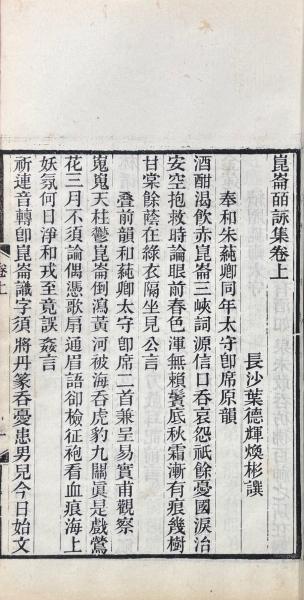 崑崙皕詠集卷上
長沙葉德輝煥彬譔
奉和朱蒓卿同年太守卽席原韻
酒酣渴飮赤崑崙三峽詞源信口吞哀怨祇餘憂國淚治
安空抱救時論眼前春色渾無賴鬢底秋霜漸有痕幾樹
甘棠餘蔭在綠衣隔坐見公言
疊前韻和蒓卿太守卽席二首兼呈易實甫觀察
嵬嵬天柱鬱崑崙倒瀉黃河被海吞虎豹九關眞是戲鶯
花三月不須論偶憑歌扇通眉語卻檢征袍看血痕海上
妖氛何日淨和戎至竟誤姦言
祈連音轉卽崑崙識字須將丹篆吞憂患男兒今日始文
卷上